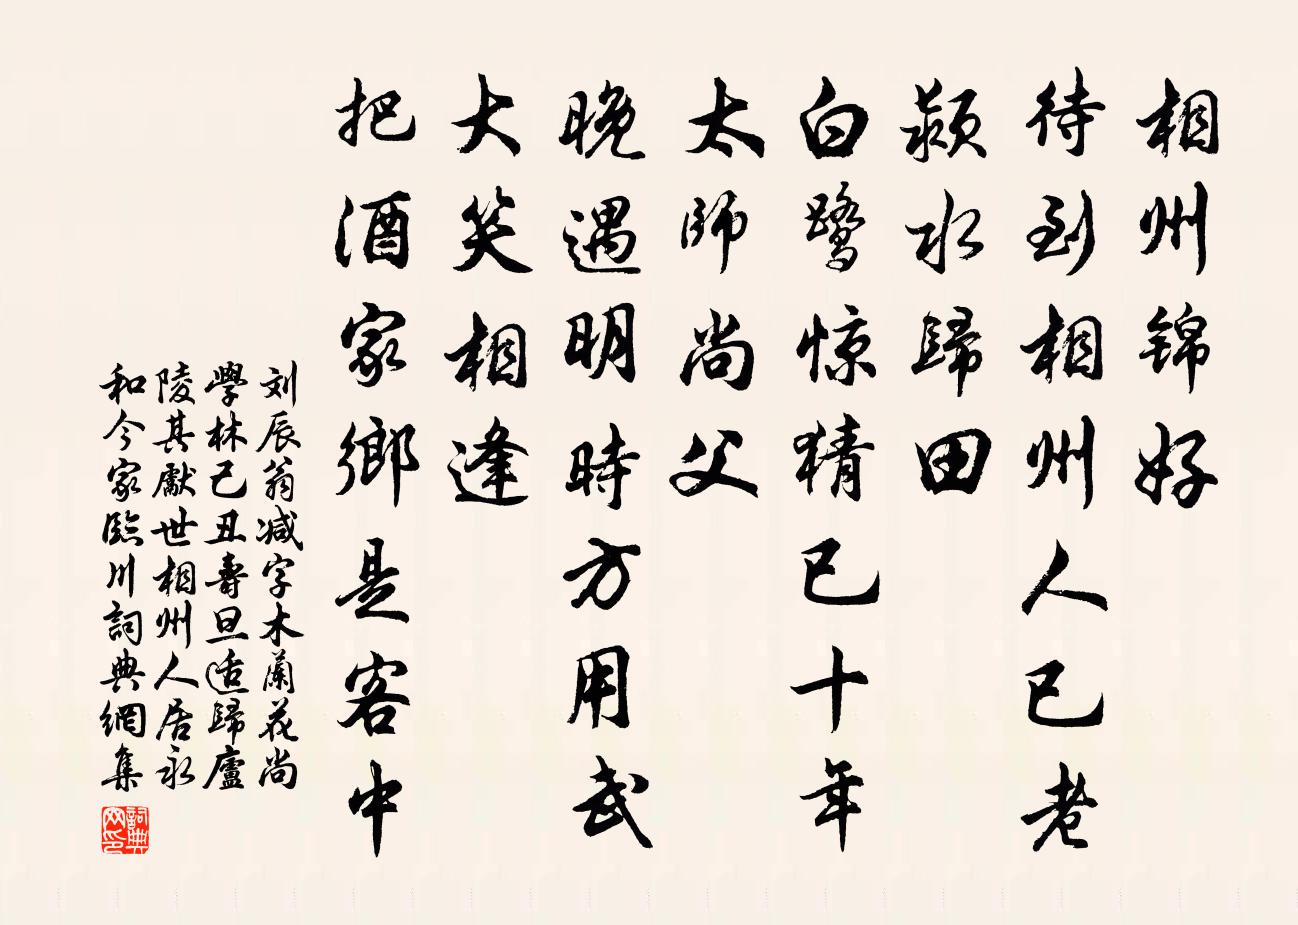 相州锦好
待到相州人已老
颍水歸田
白鹭惊猜已十年
太師尚父
晚遇明時方用武
大笑相逢
把酒家鄉是客中
刘辰翁减字木蘭花尚
學林己丑壽旦适歸廬
陵其獻世相州人居永
和今家臨川詞典網集
詞典网印